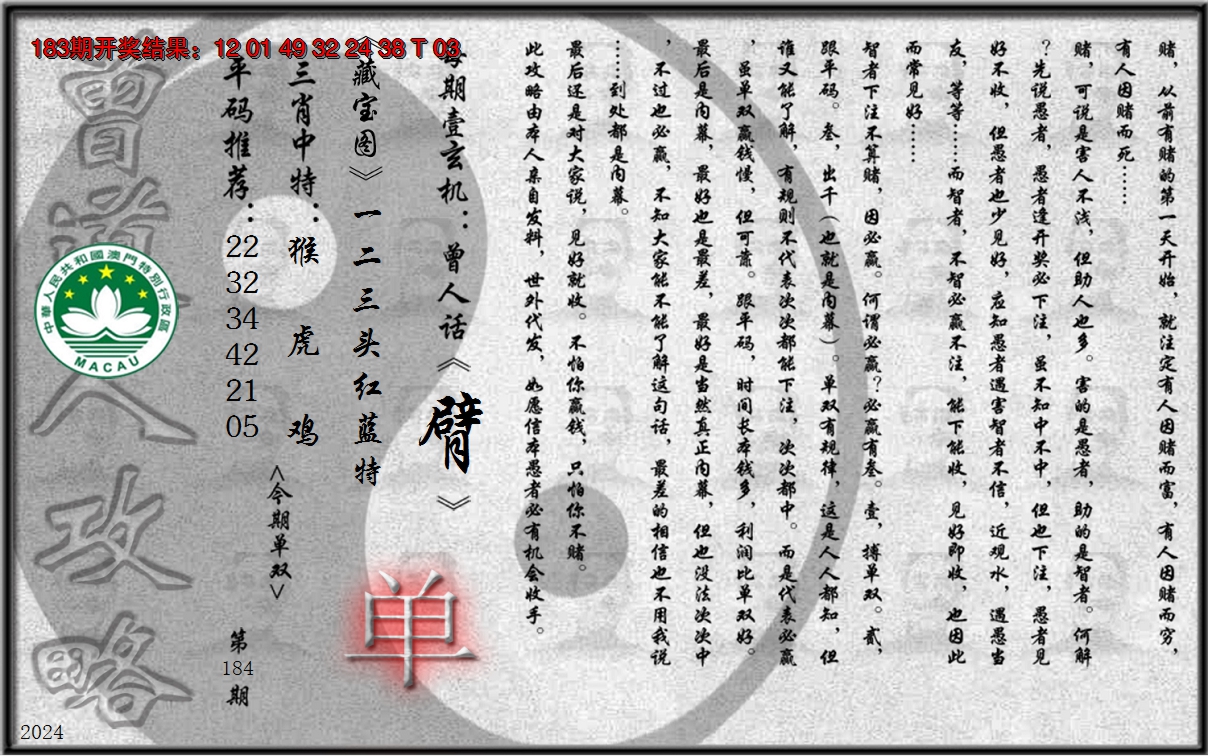 183期开奖结果：12 01 49 32 24 38 T 03
赌，从前有赌的第一天开始，就注定有人因赌而富，有人因赌而穷，
有人因赌而死……
赌，可说是害人不浅，但助人也多。害的是愚者，助的是智者。何解
？先说愚者，愚者逢开奖必下注，虽不知中不中，但也下注，愚者见
好不收，但愚者也少见好，应知愚者遇害智者不信，近观水，遇愚当
友，等等……而智者，不智必赢不注，能下能收，见好即收，也因此
而常见好……
智者下注不算赌，因必赢。何谓必赢？必赢有叁。壹，搏单双。贰，
跟平码。叁，出千（也就是内幕）。单双有规律，这是人人都知，但
谁又能了解，有规则不代表次次都能下注，次次都中。而是代表必赢
，虽单双赢钱慢，但可靠。跟平码，时间长本钱多，利润比单双好。
最后是内幕，最好也是最差，最好是当然真正内幕，但也没法次次中
，不过也必赢，不知大家能不能了解这句话，最差的相信也不用我说
……到处都是内幕。
最后还是对大家说，见好就收。不怕你赢钱，只怕你不赌。
此攻略由本人亲自发料，世外代发，如愿信本愚者必有机会收手。
每期壹玄机：曾人话《臂》
《藏宝图》一二三头红蓝特
三肖中特：猴 虎 鸡
平码推荐：22 32 34 42 21 05
<今期单双>
单
第184期
曾道人攻略
中華人民共和國澳門特別行政區
MACAU
2024